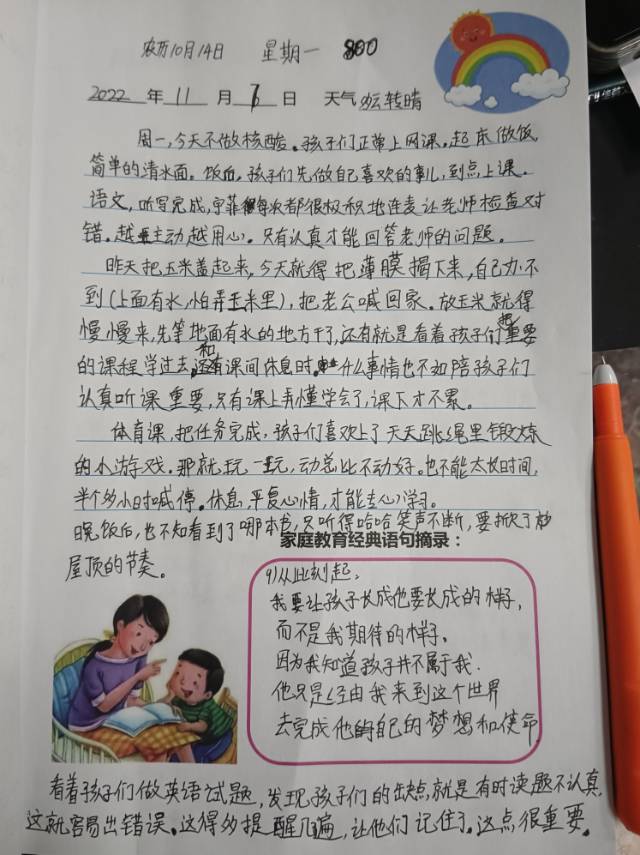 农历10月14日 星期一 800
2022年11月7日 天气 多云转晴
周一,今天不做核酸。孩子们正常上网课。起床做饭,
简单的清水面。饭后,孩子们先做自己喜欢的事儿,到点上课。
语文,听写完成,宇菲每次都很极积地连麦让老师检查对
错。越主动越用心。只有认真才能回答老师的问题。
昨天把玉米盖起来,今天就得把薄膜揭下来,自己办不
到(上面有水,怕弄玉米里),把老公喊回家。放玉米就得
慢慢来,先等地面有水的地方干了,还有就是看着孩子们把重要
的课程学过去,和课间休息时。什么事情也不如陪孩子们
认真听课重要,只有课上弄懂学会了,课下才不累。
体育课,把任务完成,孩子们喜欢上了天天跳绳里锻炼
的小游戏。那就玩一玩,动总比不动好。也不能太长时间,
半个多小时喊停。休息,平复心情,才能专心学习。
晚饭后,也不知看到了哪本书,只听得哈哈笑声不断,要掀了
屋顶的节奏。
家庭教育经典语句摘录:
9)从此刻起,
我要让孩子长成他要长成的样子,
而不是我期待的样子。
因为我知道孩子并不属于我.
他只是经由我来到这个世界
去完成他的自己的梦想和使命
看着孩子们做英语试题,发现孩子们的缺点,就是有时读题不认真,
这就容易出错误。这得多提醒几遍,让他们记住了。这点很重要。